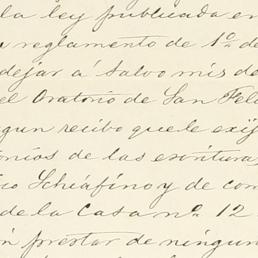 la ley publicada en
reglamento de 1º. de
dejar á salvo mis de
el Oratorio de San Feli
gun recibo que le exij
onios de las escritura
co Schiafino y de com
de la Casa nº. 12
n prestar de ningun